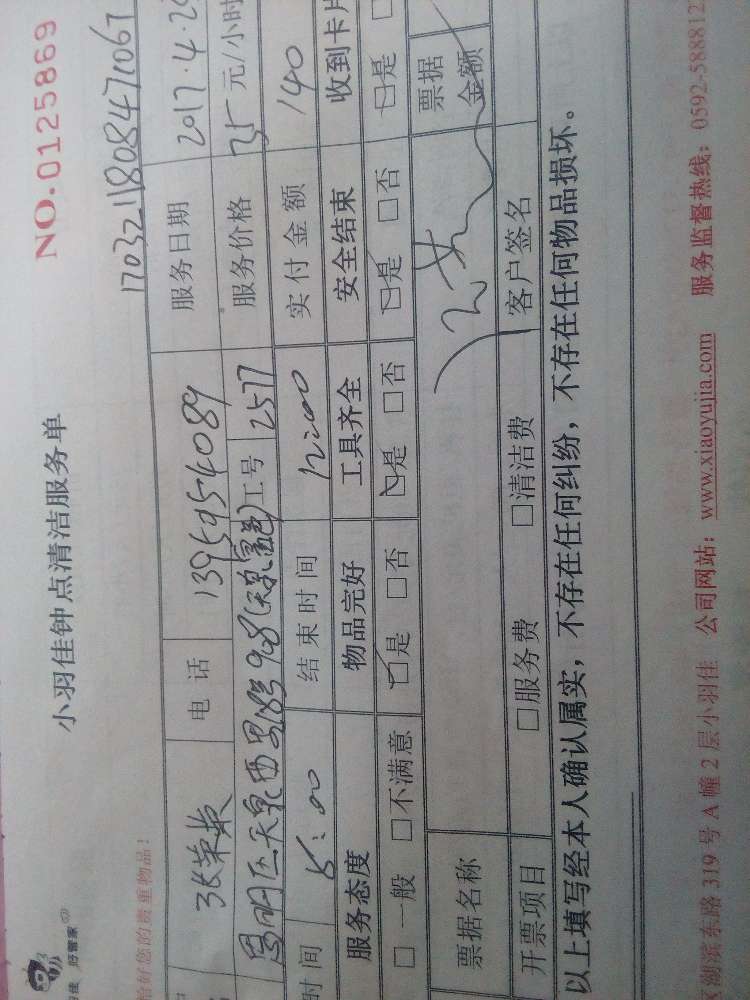 NO.0125869
小羽佳钟点清洁服务单
好管家
1703211808471067
好您的贵重物品！
电话 13959954089 服务日期 2017.4.2
工号 2577 服务价格 35 元/小时
时间 结束时间 12:00 实付金额 140
服务态度 物品完好 工具齐全 安全结束 收到卡片
□一般 □不满意 □是 □否 □是 □否 □是 □否 □是
票据名称 票据金额
开票项目 □服务费 □清洁费 客户签名
以上填写经本人确认属实，不存在任何纠纷，不存在任何物品损坏。
湖滨东路 319 号 A 幢 2 层小羽佳 公司网站：www.xiaoyujia.com 服务监督热线：0592-5888812